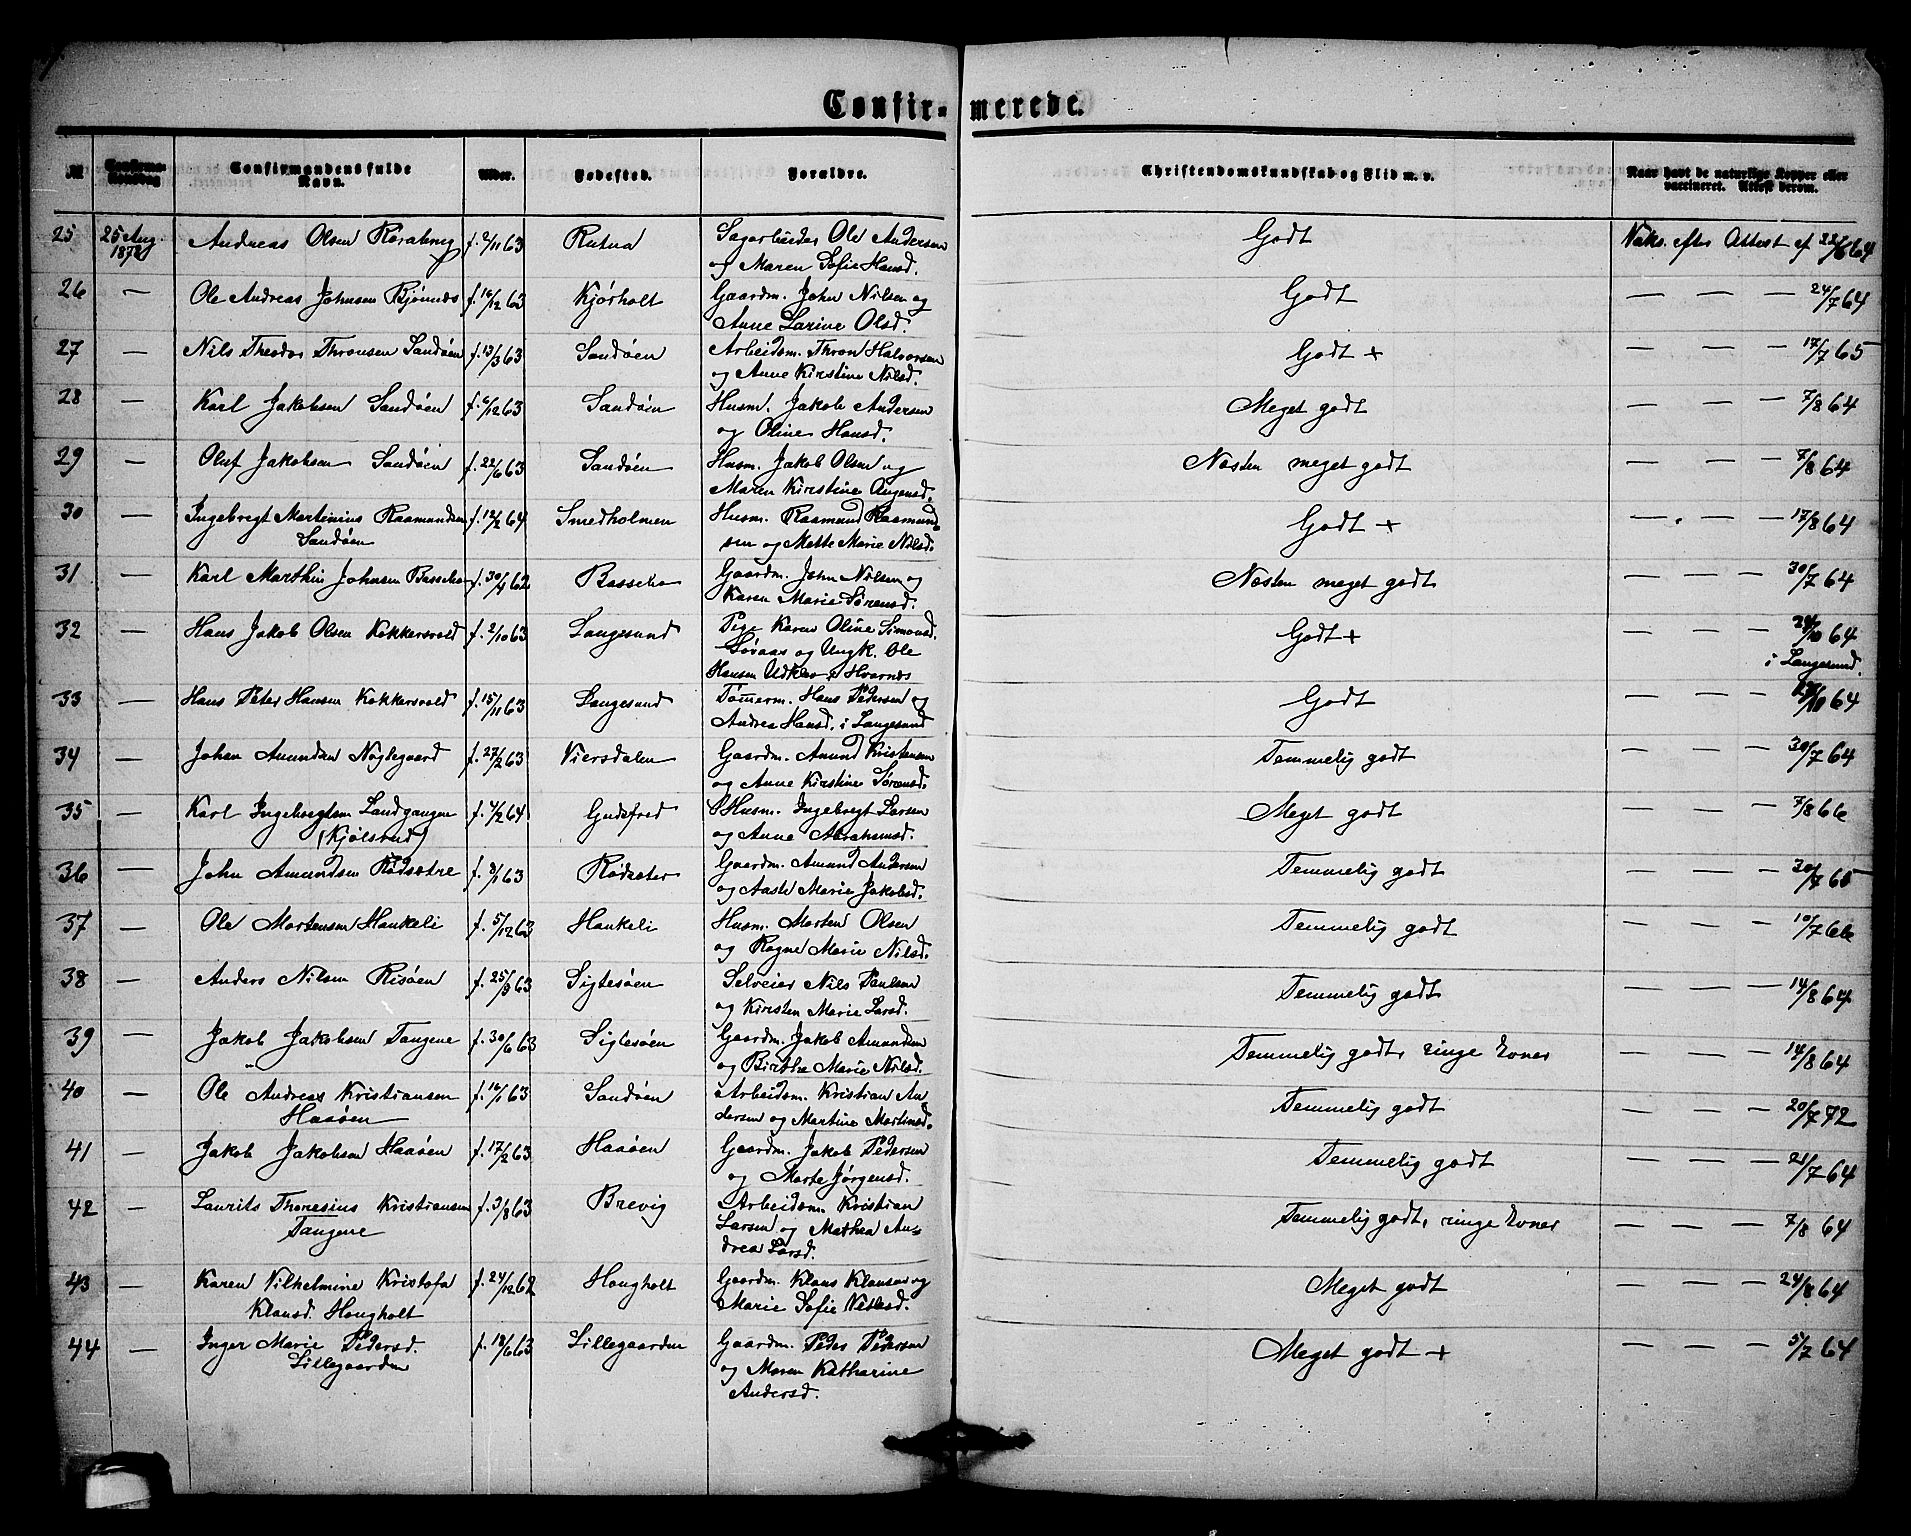 Confir-merede.
№ Confirma-tionsdag Confirmandens fulde Navn. Alder. Fødested. Forældre. Christendomskundskab og Flid m. v. Naar havt de naturlige Kopper eller vaccineret. Attest derom.
25 25 Aug. 1878 Andreas Olsen f. 2/11 63 Rutua Ole Andersen Godt Vaks. efter Attest af 22/6 64
og Maren Sofie Hansd.
26 — Ole Andreas Johnsen f. 16/12 63 Kjørholt Gaardm. John Nilsen og Godt — — — 24/7 64
Anne Larine Olsd.
27 — Nils Theodor Thronsen Sandøen f. 13/3 63 Sandøen Arbeidsm. Thron Halvorsen Godt + — — — 17/7 65
og Anne Kirstine Nilsd.
28 — Karl Jakobsen Sandøen f. 6/12 63 Sandøen Husm. Jakob Andersen Meget godt — — — 7/8 64
og Oline Hansd.
29 — Oluf Jakobsen Sandøen f. 22/6 63 Sandøen Husm. Jakob Olsen og Næsten meget godt — — — 7/8 64
Maren Kirstine
30 — Ingebregt Martinius Rasmundsen f. 12/2 64 Smedholmen Husm. Rasmund Rasmund Godt + — — 17/8 64
Sandøen sen og Mette Marie Nilsd.
31 — Karl Marthin Johnsen Bassebo f. 30/4 62 Bassebo Gaardm. John Nilsen og Næsten meget godt — — — 30/7 64
Karen Marie Sørensd.
32 — Hans Jakob Olsen Kokkersvold f. 2/10 63 Langesund Pige Karen Oline Simonsd. Godt + — — — 64
og Ungk. Ole i Langesund
Hansen
33 — Hans Peter Hansen Kokkersvold f. 15/11 63 Langesund Tømerm. Hans Pedersen og Godt — — — 64
Andrea Hansd. i Langesund
34 — Johan Amundsen Nøglegaard f. 27/2 63 Viersdalen Gaardm. Amund Kristensen Temmelig godt — — — 30/7 64
og Anne Kirstine Sørensd.
35 — Karl Ingebregtsen Landgangen f. 4/2 64 Gudsfred Husm. Ingebregt Larsen Meget godt — — — 7/8 66
(Kjølsrud) og Anne Abrahamsd.
36 — John Amundsen Rødsætre f. 8/1 63 Rødsæter Gaardm. Amund Andersen Temmelig godt — — — 30/7 65
og Aaste Marie Jakobsd.
37 — Ole Mortensen Haukeli f. 5/12 63 Haukeli Husm. Morten Olsen Temmelig godt — — — 10/7 66
og Ragne Marie Nilsd.
38 — Anders Nilsen Risøen f. 25/9 63 Sigtesøen Selveier Nils Paulsen Temmelig godt — — — 14/8 64
og Kirsten Marie Larsd.
39 — Jakob Jakobsen Tangene f. 30/6 63 Sigtesøen Gaardm. Jakob Amundsen Temmelig godt, ringe Evner — — — 14/8 64
og Birthe Marie Nilsd.
40 — Ole Andreas Kristiansen f. 16/1 63 Sandøen Arbeidsm. Kristian An Temmelig godt — — — 20/7 72
Haaøen dersen og Martine Martinsd.
41 — Jakob Jakobsen Haaøen f. 17/2 63 Haaøen Gaardm. Jakob Pedersen Temmelig godt — — — 21/7 64
og Marte Jørgensd.
42 — Laurits Thoresius Kristiansen f. 3/8 63 Brevig Arbeidsm. Kristian Temmelig godt, ringe Evner — — — 7/8 64
Tangene Larsen og Mathea An-
drea Larsd.
43 — Karen Vilhelmine Kristofa f. 24/12 62 Hougholt Gaardm. Klaus Klausen og Meget godt — — — 24/8 64
Klausd. Hougholt Marie Sofie
44 — Inger Marie Pedersd. f. 18/6 63 Lillegaarden Gaardm. Peder Pedersen Meget godt + — — — 5/7 64
Lillegaarden og Maren Katharine
Andersd.